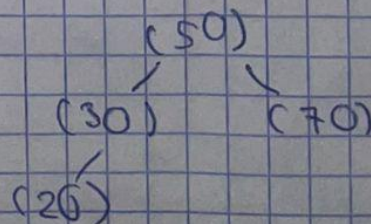 (50)
(30) (70)
(20)